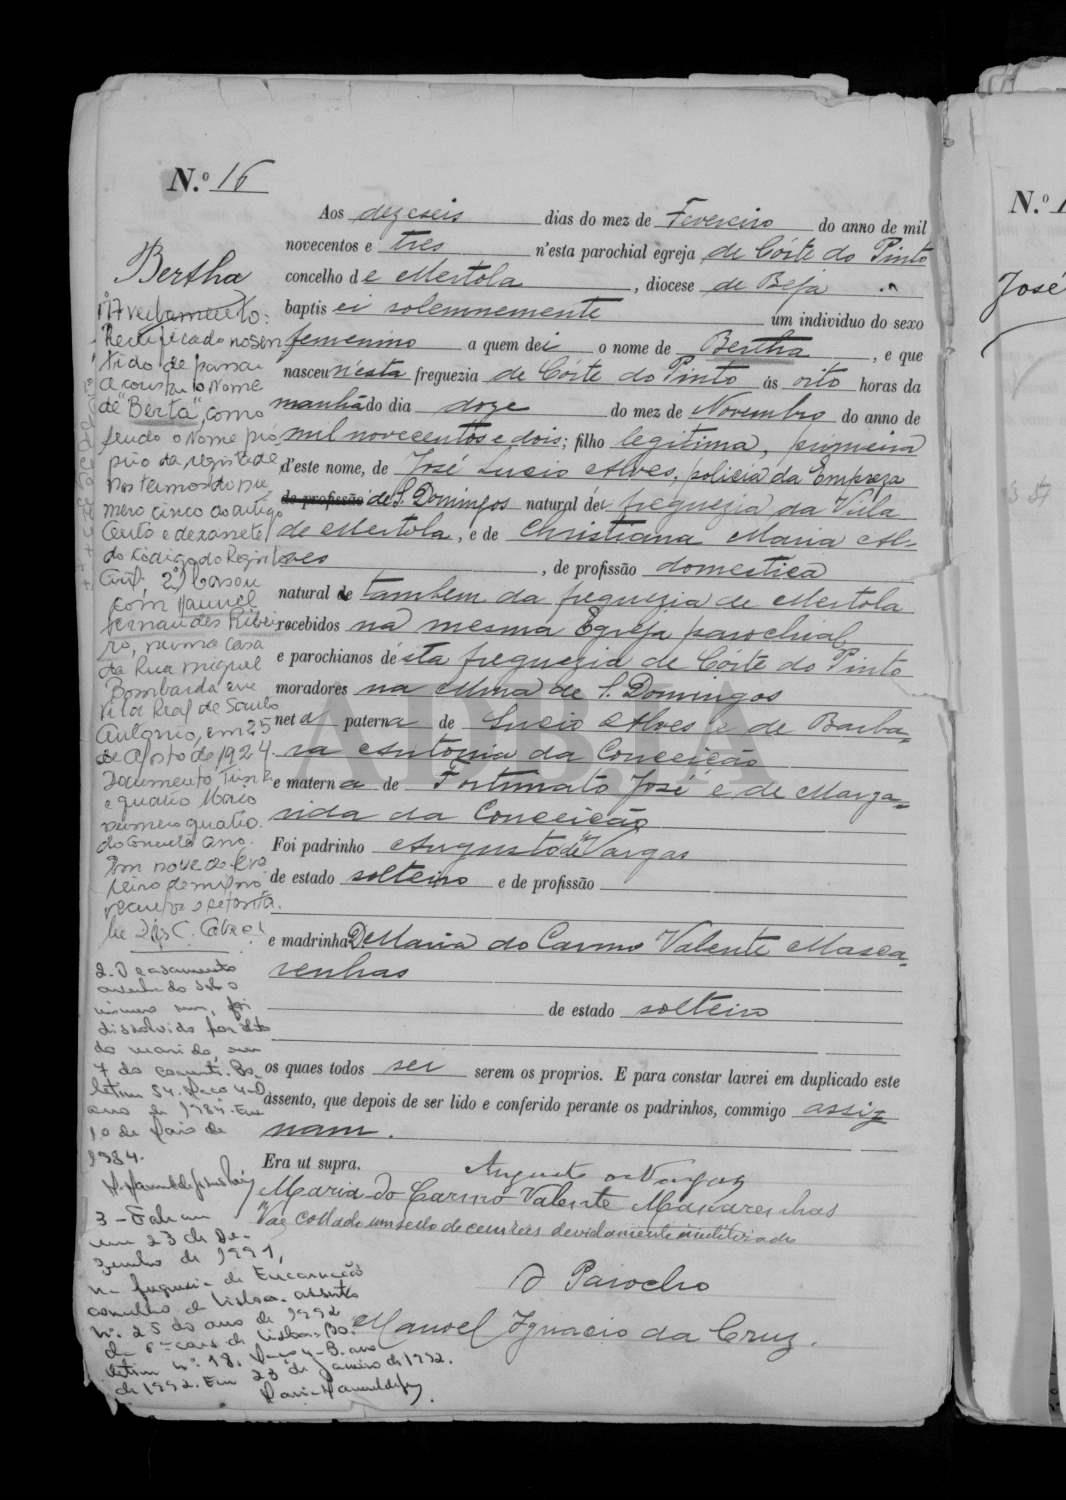 N.º 16
Aos dezeseis dias do mez de Fevereiro do anno de mil
novecentos e tres n'esta parochial egreja de Córte do Pinto
concelho de Mertola, diocese de Beja
baptisei solemnemente um individuo do sexo
femenino a quem dei o nome de Bertha, e que
nasceu n'esta freguezia de Córte do Pinto ás oito horas da
manhã do dia doze do mez de Novembro do anno de
mil novecentos e dois; filho legitima, primeira
d'este nome, de José Lucio Alves, policia da Empreza
de profissão de S. Domingos natural da freguezia da Villa
de Mertola, e de Christiana Maria Al-
ves, de profissão domestica
natural de tambem da freguezia de Mertola
recebidos na mesma Egreja parochial
e parochianos d'esta freguezia de Córte do Pinto
moradores na Mina de S. Domingos
neta paterna de Lucio Alves e de Barba=
ra Antonia da Conceição
e materna de Fortunato José e de Marga=
rida da Conceição
Foi padrinho Augusto de Vargas
de estado solteiro e de profissão
e madrinha D. Maria do Carmo Valente Masca=
renhas
de estado solteiro
os quaes todos sei serem os proprios. E para constar lavrei em duplicado este
assento, que depois de ser lido e conferido perante os padrinhos, commigo assig
nam.
Era ut supra.
Augusto de Vargas
Maria do Carmo Valente Mascarenhas
Vae collado um sello de cem reis devidamente inutilisado
O Parocho
Manoel Ignacio da Cruz.
Bertha
1º Averbamento:
Rectificado no sen
tido de passar
a constar o Nome
de "Berta", como
sendo o Nome pró
prio da registada,
nos termos do nu
mero cinco do artigo
cento e dezassete
do Código do Registo
Civil. 2º) Casou
com Manuel
Fernandes Ribei
ro, numa casa
da Rua Miguel
Bombarda em
Vila Real de Santo
António, em 25
de Agosto de 1924.
Documento Trinta
e quatro Maço
numero quatro.
do corrente ano.
Em nove de
de mil no
vecentos e setenta.
2. O casamento
averbado sob o
número um, foi
dissolvido por óbito
do marido, em
7 do corrente. Bo-
letim 54. Maço 4-D
ano de 1984. Em
10 de Maio de
1984.
3 - Faleceu
em 23 de De-
zembro de 1991,
na freguesia da Encarnação
concelho de Lisboa. assento
nº. 25 do ano de 1992
da 6ª cons. de Lisboa. Bo-
letim nº. 18. Maço 4-B. ano
de 1992. Em 23 de Janeiro de 1992.
ADBJA
N.º 1
José